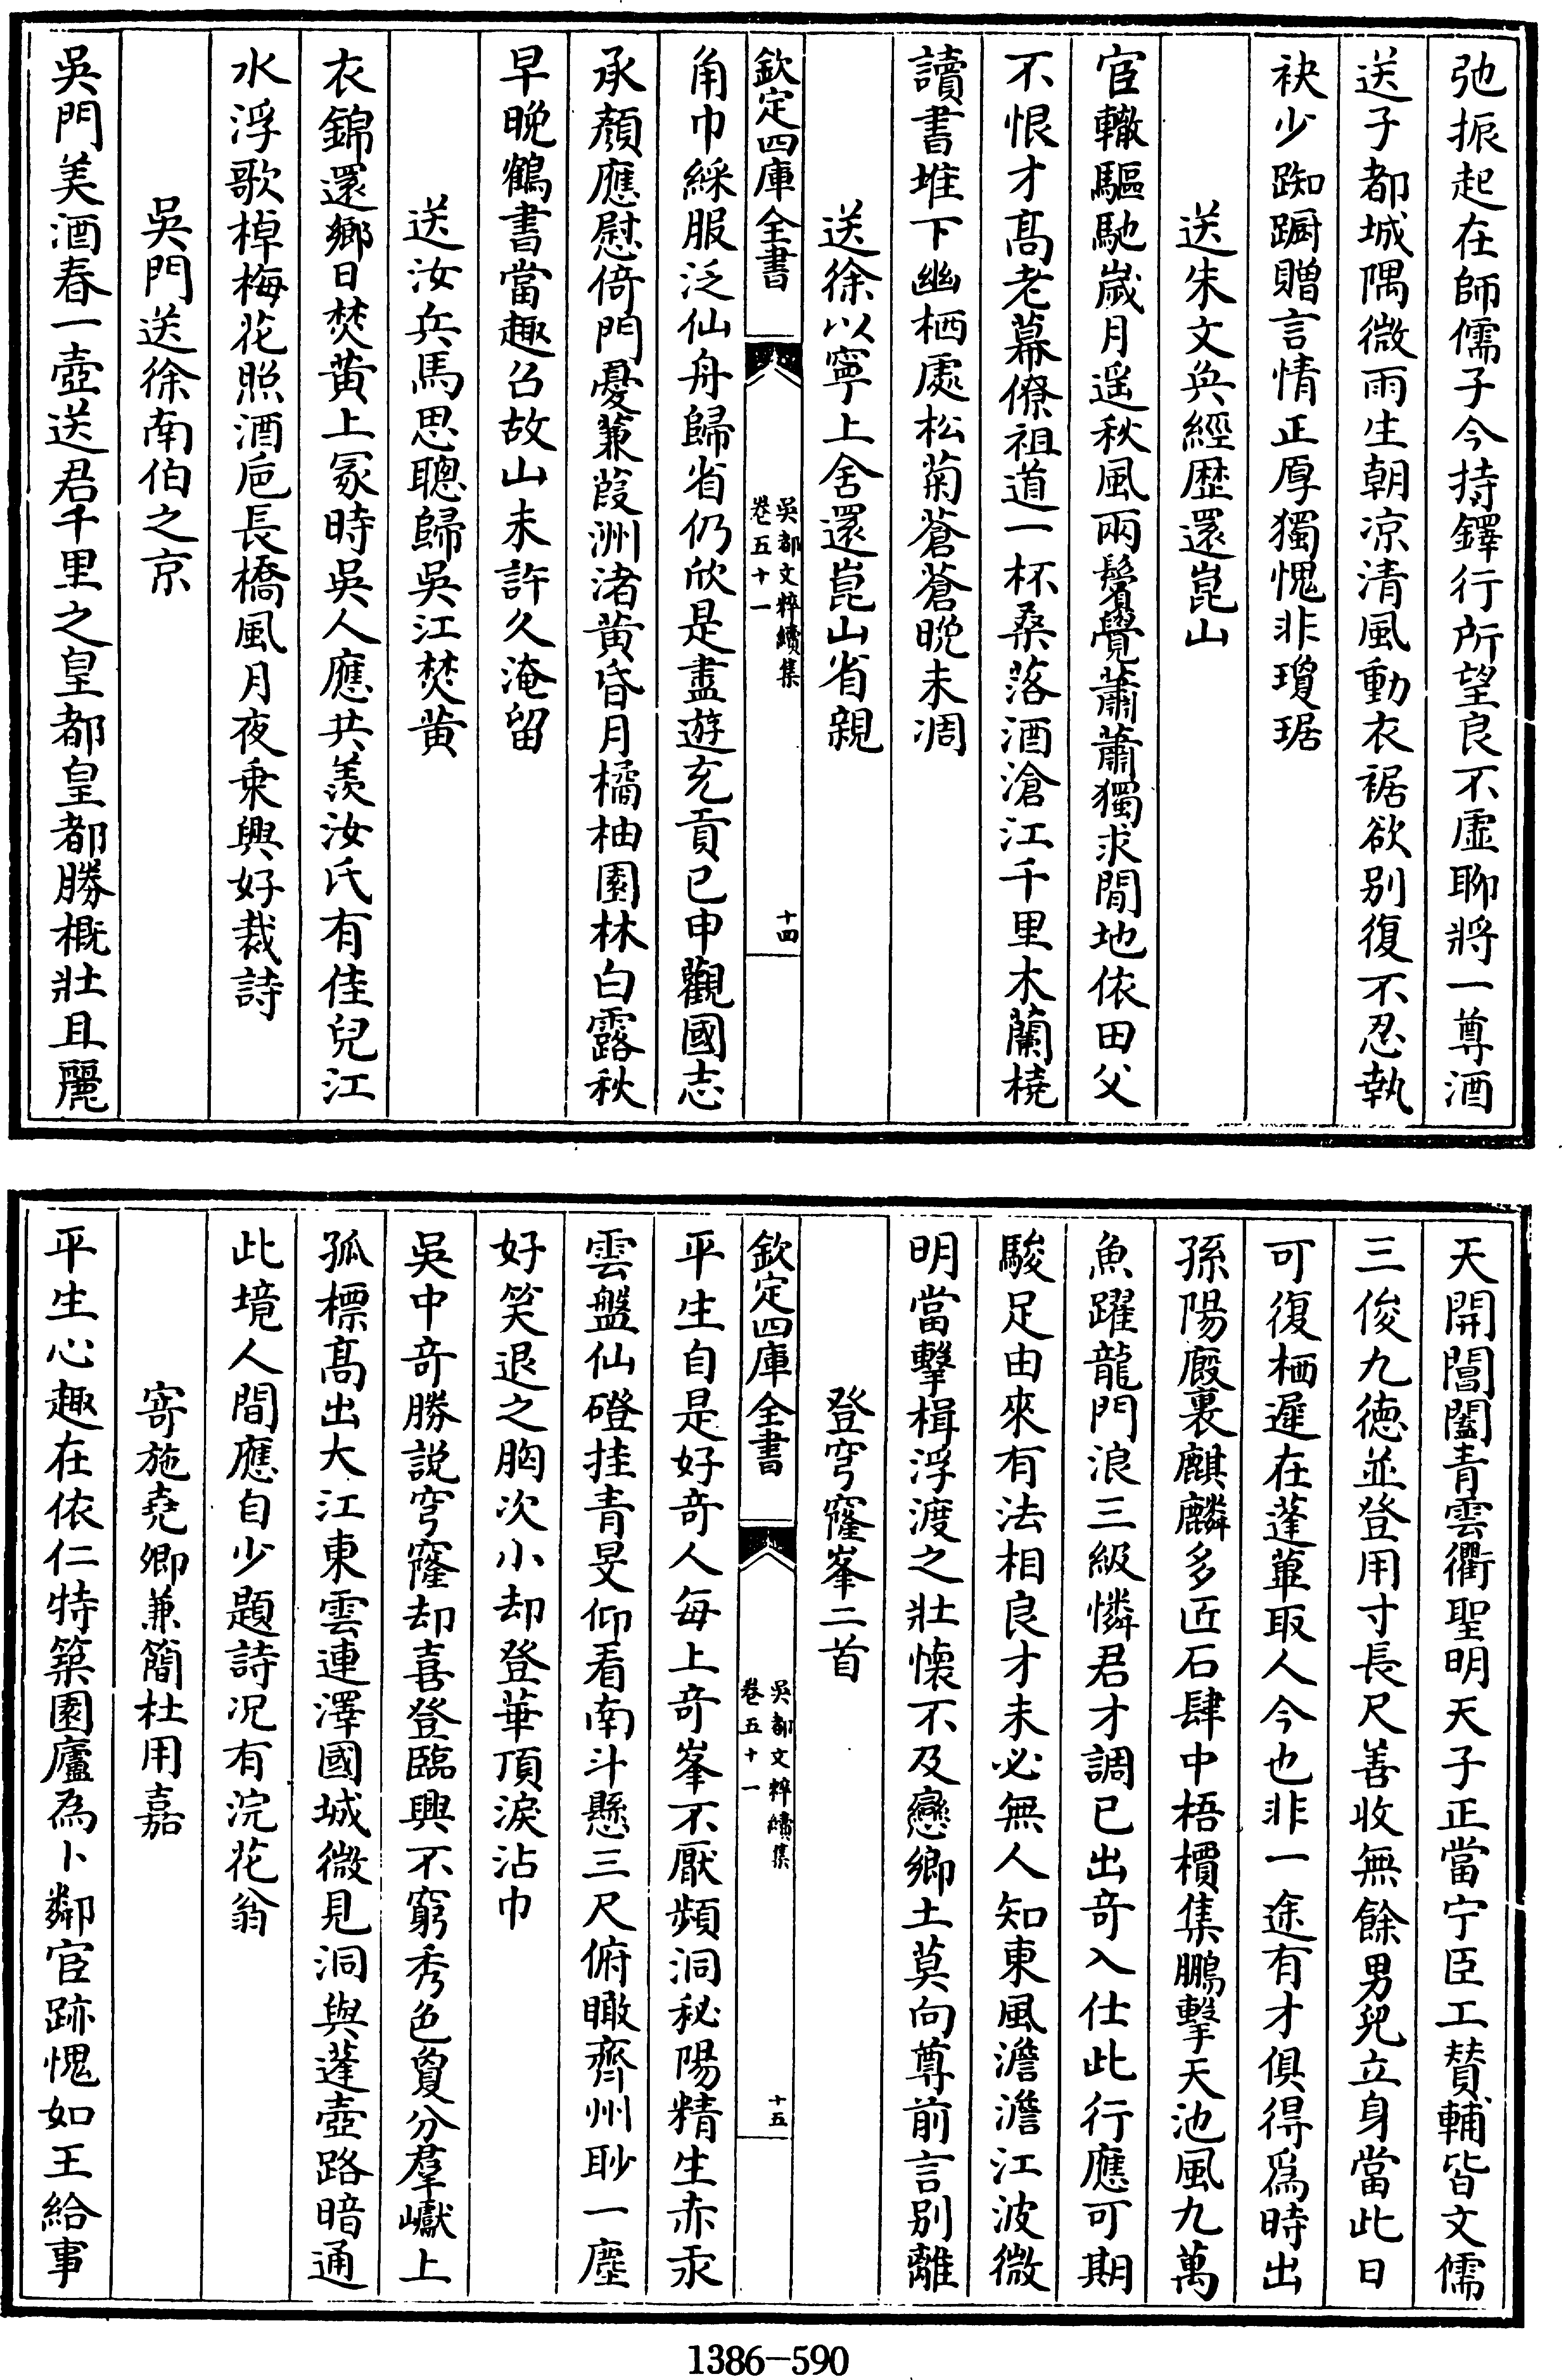 弛振起在師儒子今持鐸行所望良不虛聊將一尊酒
送子都城隅微雨生朝凉清風動衣裾欲别復不忍執
袂少踟蹰贈言情正厚獨愧非瓊琚
送朱文奐經歴還崑山
宦轍驅馳嵗月遥秋風兩鬢覺蕭蕭獨求閒地依田父
不恨才髙老幕僚祖道一杯桑落酒滄江千里木蘭橈
讀書堆下幽栖處松菊蒼蒼晚未凋
送徐以寧上舍還崑山省親
欽定四庫全書
吳都文粹續集
卷五十一
十四
角巾綵服泛仙舟歸省仍欣是盡遊充貢已申觀國志
承顔應慰倚門憂蒹葭洲渚黄昏月橘柚園林白露秋
早晚鶴書當趣召故山未許久淹留
送汝兵馬思聰歸吳江焚黄
衣錦還鄉日焚黄上冢時吳人應共羨汝氏有佳兒江
水浮歌棹梅花照酒巵長橋風月夜乗興好裁詩
吳門送徐南伯之京
吳門美酒春一壺送君千里之皇都皇都勝概壯且麗
天開閶闔青雲衢聖明天子正當宁臣工賛輔皆文儒
三俊九德並登用寸長尺善收無餘男兒立身當此日
可復栖遲在蓬蓽取人今也非一途有才俱得爲時出
孫陽廐裏麒麟多匠石肆中梧檟集鵬擊天池風九萬
魚躍龍門浪三級憐君才調已出奇入仕此行應可期
駿足由來有法相良才未必無人知東風澹澹江波微
明當擊楫浮渡之壯懷不及戀鄉土莫向尊前言别離
登穹窿峯二首
欽定四庫全書
吳都文粹續集
卷五十一
十五
平生自是好奇人每上奇峯不厭頻洞秘陽精生赤汞
雲盤仙磴挂青旻仰看南斗懸三尺俯瞰齊州眇一塵
好笑退之胸次小却登華頂淚沾巾
吳中奇勝説穹窿却喜登臨興不窮秀色敻分羣巘上
孤標髙出大江東雲連澤國城微見洞與蓬壺路暗通
此境人間應自少題詩況有浣花翁
寄施堯卿兼簡杜用嘉
平生心趣在依仁特築園廬為卜鄰宦跡愧如王給事
1386-590